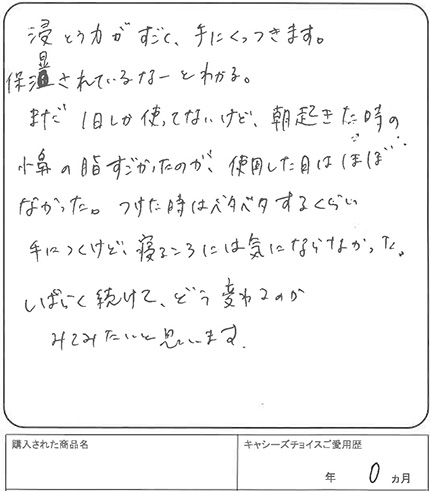 浸とう力がすごく、手にくっつきます。
保湿されているなーとわかる。
まだ 1日しか使ってないけど、朝起きた時の
鼻の脂すごかったのが、使用した日はほぼ
なかった。つけた時はベタベタするくらい
手につくけど、寝るころには気にならなかった。
しばらく続けて、どう変わるのか
みてみたいと思います。
購入された商品名
キャシーズチョイスご愛用歴
年 0 ヵ月